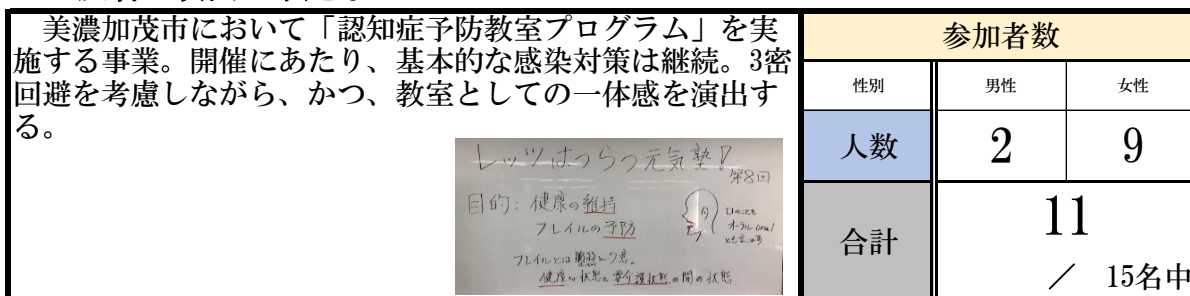 美濃加茂市において「認知症予防教室プログラム」を実
施する事業。開催にあたり、基本的な感染対策は継続。3密
回避を考慮しながら、かつ、教室としての一体感を演出す
る。
レッツはつらつ元気塾!
第8回
目的:健康の維持
フレイルの予防
口のことを
オーラル oral
とも言います
フレイルとは
健康な状態と要介護状態の間の状態
参加者数
性別 男性 女性
人数 2 9
合計 11
/ 15名中